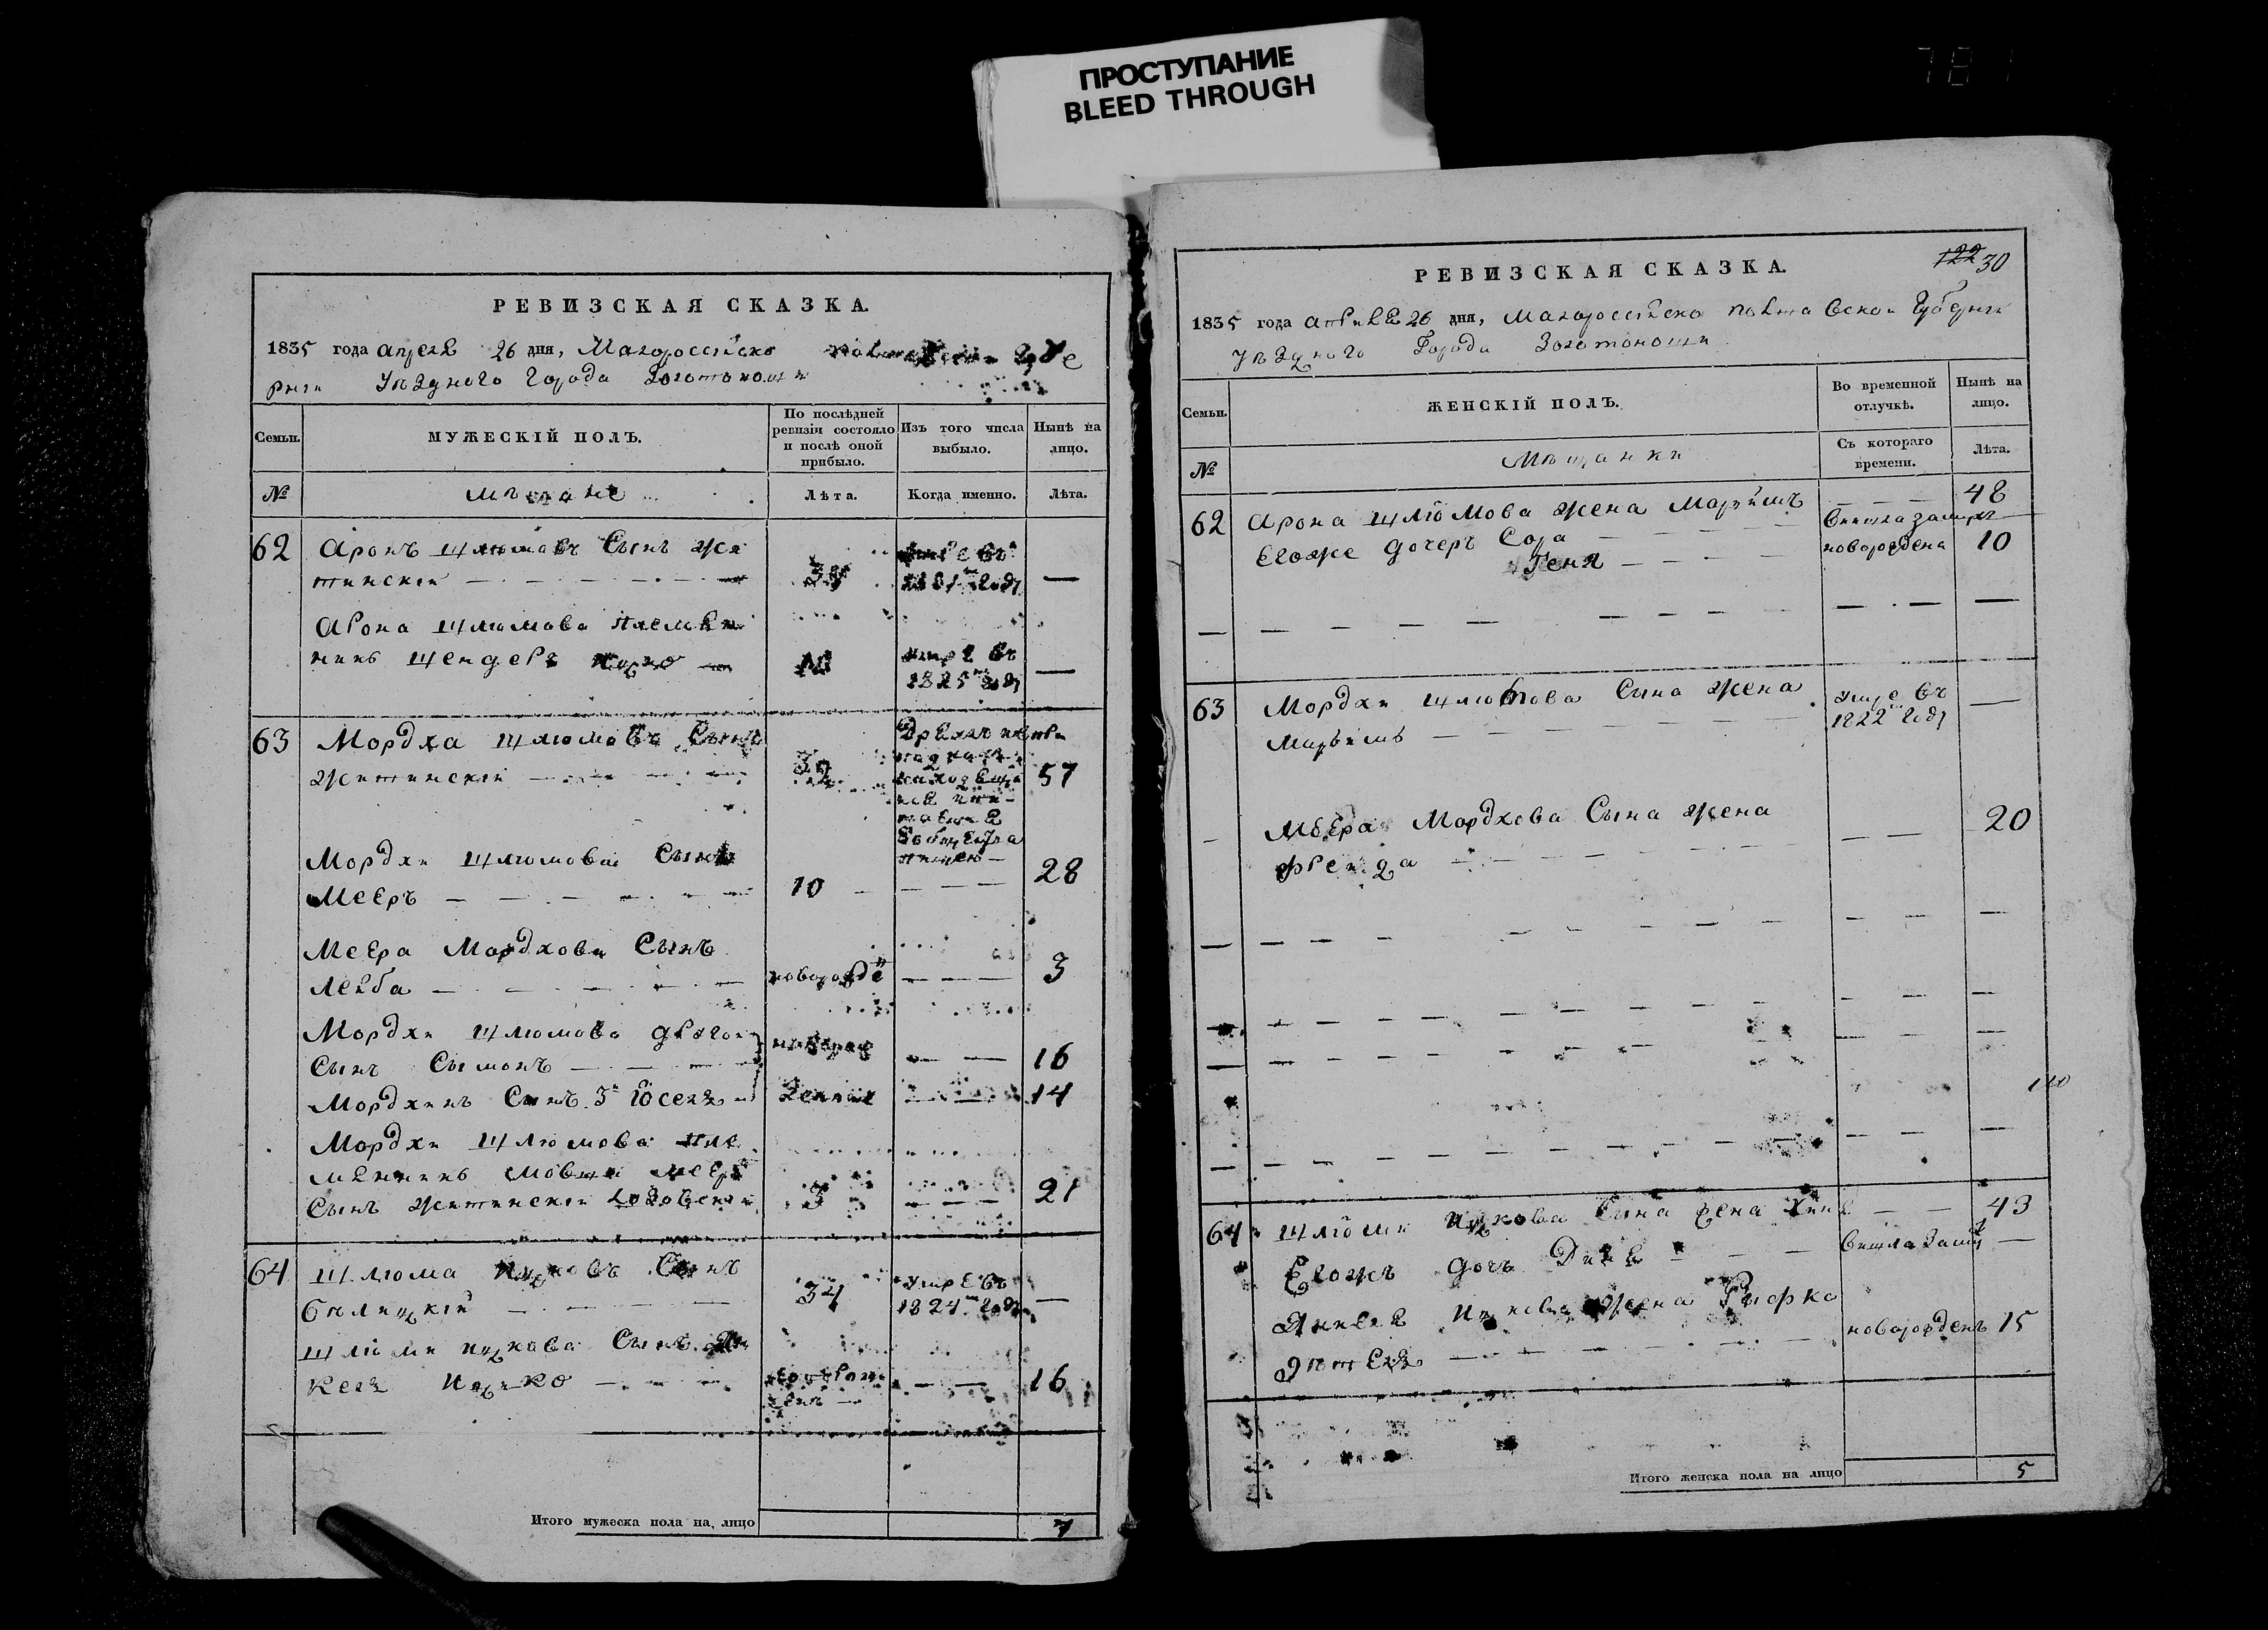 ПРОСТУПАНИЕ
BLEED THROUGH
781
РЕВИЗСКАЯ СКАЗКА.
1835 года апреля 26 дня, Малороссійско
рніи Уѣзднаго города Золотоноши
Семьи.
МУЖЕСКІЙ ПОЛЪ.
По послѣдней ревизіи состояло и послѣ оной прибыло.
Изъ того числа выбыло.
Нынѣ на лицо.
№
мѣщане
Лѣта.
Когда именно.
Лѣта.
62 Аронъ Шлюмовъ Сынъ Жи
тинскій —
Арона Шлюмова племян
никъ Шендеръ
умре въ
1825 году —
63 Мордха Шлюмовъ Сынъ
Житинскій 32 57
Мордхи Шлюмова Сынъ
Мееръ 10 — 28
Меера Мордхова Сынъ
Лейба новорожде — 3
Мордхи Шлюмова другой
Сынъ Сымонъ — 16
Мордхинъ Сынъ 3й Іосель — 14
Мордхи Шлюмова пле
мянникъ Мовша Меера
Сынъ Житинскій 3 — 21
64 Шлюма Ицковъ Сынъ
Бѣлицкій 34 умре въ 1824 году —
Шлюмы Ицкова Сынъ Ян
кель Ицько — 16
Итого мужеска пола на лицо 7
РЕВИЗСКАЯ СКАЗКА.
122 30
1835 года апреля 26 дня, Малороссійско Полтавской Губерніи
Уѣзднаго Города Золотоноши
Семьи.
ЖЕНСКІЙ ПОЛЪ.
Во временной отлучкѣ.
Нынѣ на лицо.
№
Мѣщанки
Съ котораго времени.
Лѣта.
62 Арона Шлюмова жена Марьимъ — 48
Егоже дочерь Сора вишла замуж —
Геня новорождена 10
63 Мордхи Шлюмова Сына жена
Марьимъ умре въ 1822 году —
Меера Мордхова Сына жена
Фрейда — 20
64 Шлюми Ицкова Сына жена — 43
Егожъ дочь вишла замуж —
Янкеля Ицкова жена Рыфка
новорожденъ 15
Итого женска пола на лицо 5